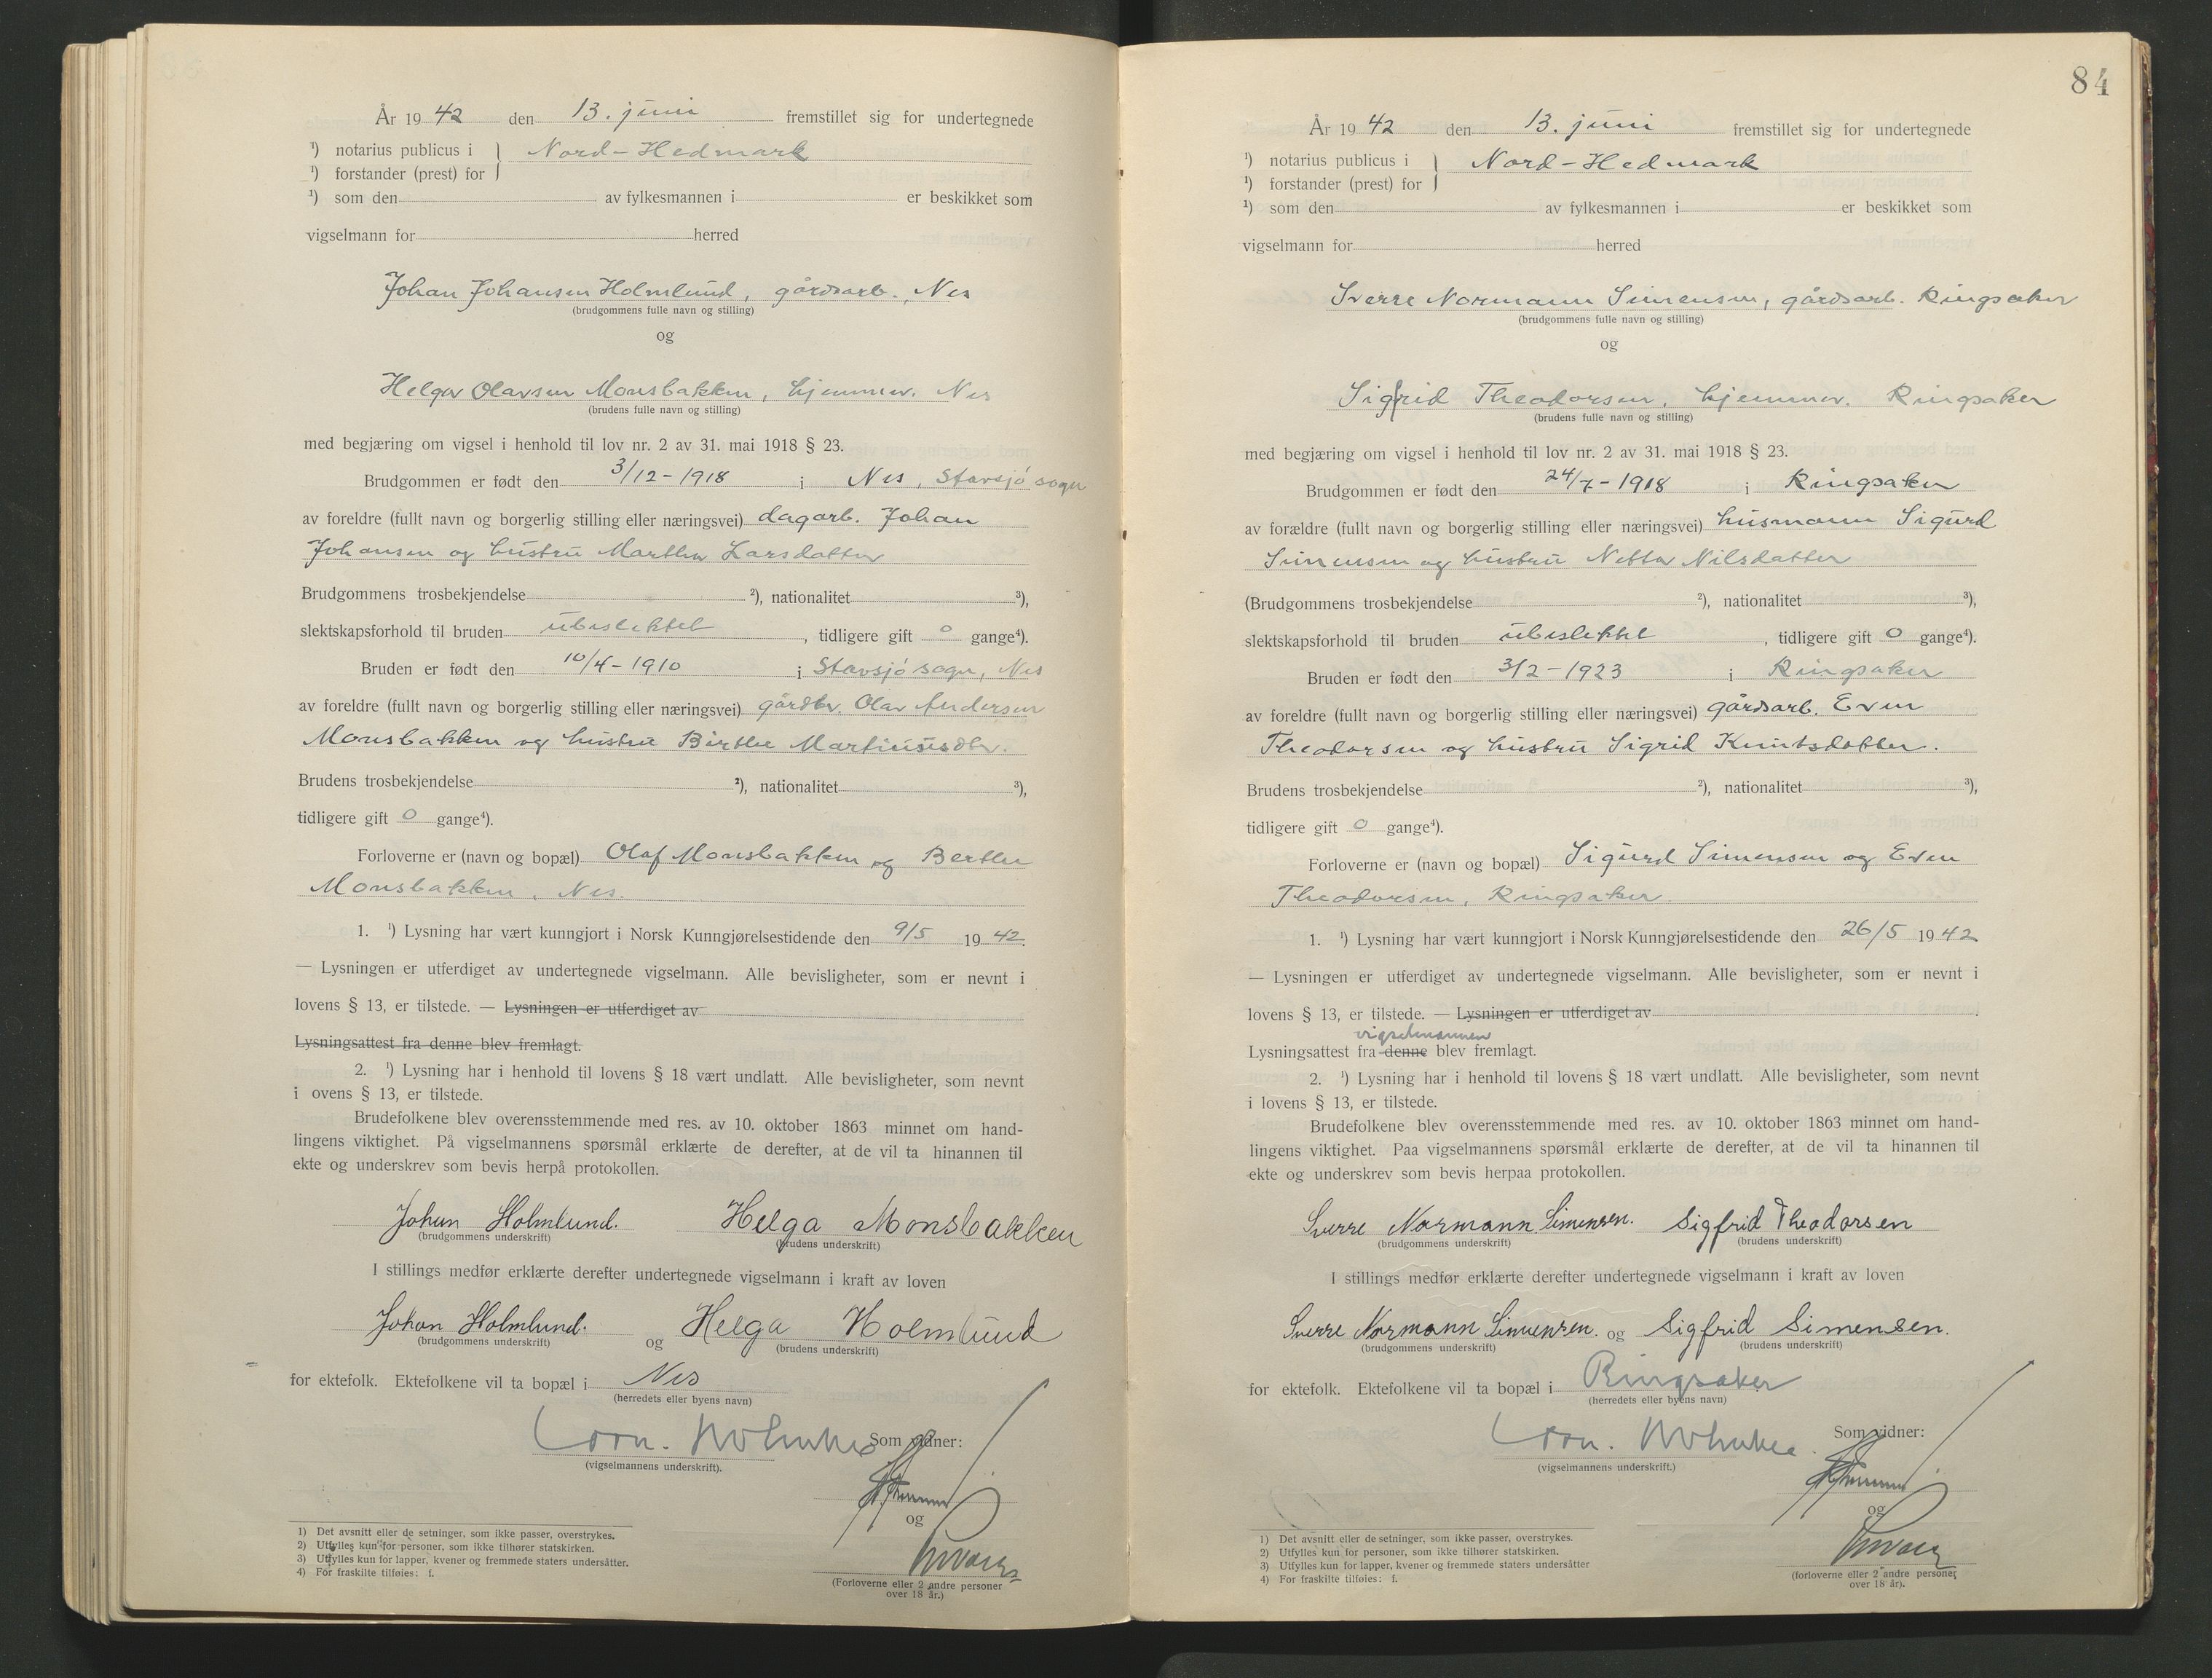 År 1942 den 13. juni fremstillet sig for undertegnede
¹) notarius publicus i } Nord-Hedmark
¹) forstander (prest) for
¹) som den av fylkesmannen i er beskikket som
vigselmann for herred
Johan Johansen Holmlund, gårdsarb. Nes
(brudgommens fulle navn og stilling)
og
Helga Olavsen Monsbakken, hjemmev. Nes
(brudens fulle navn og stilling)
med begjæring om vigsel i henhold til lov nr. 2 av 31. mai 1918 § 23.
Brudgommen er født den 3/12-1918 i Nes, Stavsjø sogn
av foreldre (fullt navn og borgerlig stilling eller næringsvei) dagarb. Johan
Johansen og hustru Marthe Larsdatter
Brudgommens trosbekjendelse ²), nationalitet ³),
slektskapsforhold til bruden ubeslektet, tidligere gift 0 gange⁴).
Bruden er født den 10/4-1910 i Stavsjø sogn, Nes
av foreldre (fullt navn og borgerlig stilling eller næringsvei) gårdbr. Olav Andersen
Monsbakken og hustru Birthe Martinusdtr.
Brudens trosbekjendelse ²), nationalitet ³),
tidligere gift 0 gange⁴).
Forloverne er (navn og bopæl) Olaf Monsbakken og Berthe
Monsbakken, Nes.
1. ¹) Lysning har vært kunngjort i Norsk Kunngjørelsestidende den 9/5 1942.
— Lysningen er utferdiget av undertegnede vigselmann. Alle bevisligheter, som er nevnt i
lovens § 13, er tilstede. — Lysningen er utferdiget av
Lysningsattest fra denne blev fremlagt.
2. ¹) Lysning har i henhold til lovens § 18 vært undlatt. Alle bevisligheter, som nevnt
i ovens § 13, er tilstede.
Brudefolkene blev overensstemmende med res. av 10. oktober 1863 minnet om hand-
lingens viktighet. På vigselmannens spørsmål erklærte de derefter, at de vil ta hinannen til
ekte og underskrev som bevis herpå protokollen.
Johan Holmlund. Helga Monsbakken
(brudgommens underskrift) (brudens underskrift)
I stillings medfør erklærte derefter undertegnede vigselmann i kraft av loven
Johan Holmlund. og Helga Holmlund
(brudgommens underskrift) (brudens underskrift)
for ektefolk. Ektefolkene vil ta bopæl i Nes
(herredets eller byens navn)
Som vidner:
(vigselmannens underskrift).
og
(Forloverne eller 2 andre personer
over 18 år.)
1) Det avsnitt eller de setninger, som ikke passer, overstrykes.
2) Utfylles kun for personer, som ikke tilhører statskirken.
3) Utfylles kun for lapper, kvener og fremmede staters undersåtter.
4) For fraskilte tilføies: f.
84
År 1942 den 13. juni fremstillet sig for undertegnede
¹) notarius publicus i } Nord-Hedmark
¹) forstander (prest) for
¹) som den av fylkesmannen i er beskikket som
vigselmann for herred
Sverre Normann Simensen, gårdsarb. Ringsaker
(brudgommens fulle navn og stilling)
og
Sigfrid Theodorsen, hjemmev. Ringsaker
(brudens fulle navn og stilling)
med begjæring om vigsel i henhold til lov nr. 2 av 31. mai 1918 § 23.
Brudgommen er født den 24/7-1918 i Ringsaker
av forældre (fullt navn og borgerlig stilling eller næringsvei) husmann Sigurd
Simensen og hustru Netta Nilsdatter
(Brudgommens trosbekjendelse ²), nationalitet ³),
slektskapsforhold til bruden ubeslektet, tidligere gift 0 gange⁴).
Bruden er født den 3/2-1923 i Ringsaker
av foreldre (fullt navn og borgerlig stilling eller næringsvei) gårdsarb. Even
Theodorsen og hustru Sigrid Knutsdatter.
Brudens trosbekjendelse ²), nationalitet ³),
tidligere gift 0 gange⁴).
Forloverne er (navn og bopæl) Sigurd Simensen og Even
Theodorsen, Ringsaker.
1. ¹) Lysning har vært kunngjort i Norsk Kunngjørelsestidende den 26/5 1942
— Lysningen er utferdiget av undertegnede vigselmann. Alle bevisligheter, som er nevnt i
lovens § 13, er tilstede. — Lysningen er utferdiget av
vigselmannen
Lysningsattest fra denne blev fremlagt.
2. ¹) Lysning har i henhold til lovens § 18 vært undlatt. Alle bevisligheter, som nevnt
i lovens § 13, er tilstede.
Brudefolkene blev overensstemmende med res. av 10. oktober 1863 minnet om hand-
lingens viktighet. Paa vigselmannens spørsmål erklærte de derefter, at de vil ta hinannen til
ekte og underskrev som bevis herpaa protokollen.
Sverre Normann Simensen. Sigfrid Theodorsen
(brudgommens underskrift) (brudens underskrift)
I stillings medfør erklærte derefter undertegnede vigselmann i kraft av loven
Sverre Normann Simensen. og Sigfrid Simensen.
(brudgommens underskrift) (brudens underskrift)
for ektefolk. Ektefolkene vil ta bopæl i Ringsaker
(herredets eller byens navn)
Som vidner:
(vigselmannens underskrift.)
og
(forloverne eller 2 andre personer
over 18 år).
1) Det avsnitt eller de setninger, som ikke passer, overstrykes.
2) Utfylles kun for personer, som ikke tilhører statskirken.
3) Utfylles kun for lapper, kvener og fremmede staters undersåtter
4) For fraskilte tilføies: f.